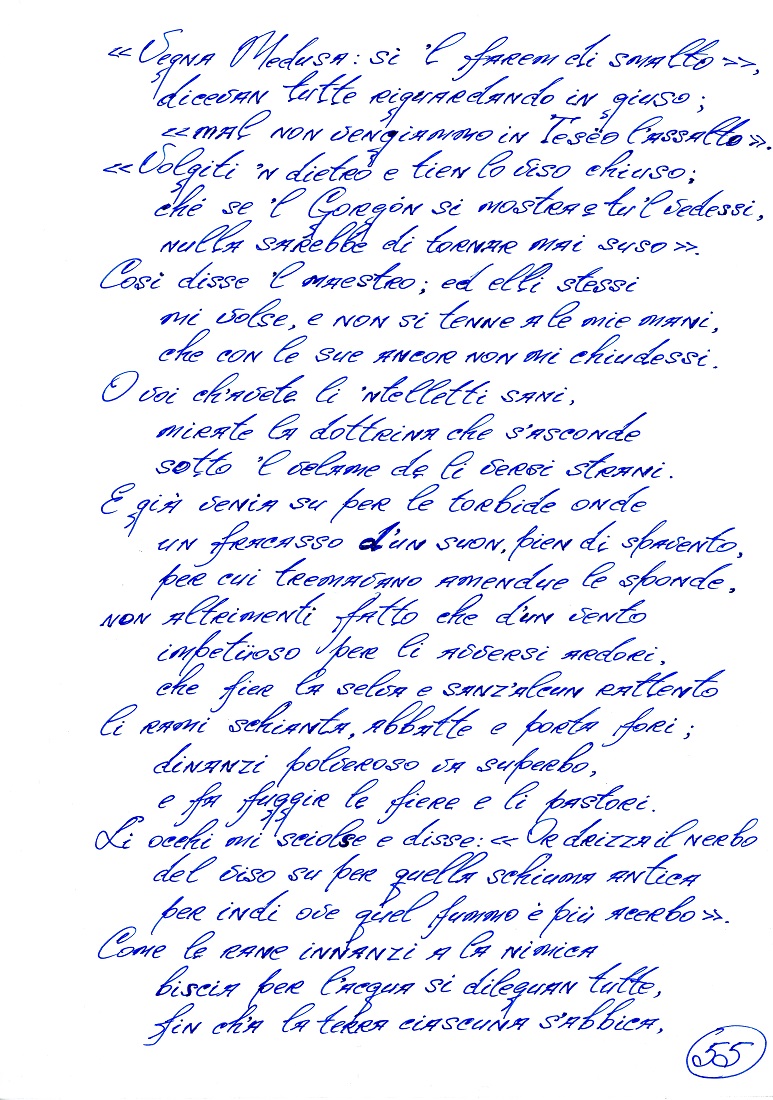 «Vegna Medusa: sì 'l farem di smalto»,
dicevan tutte riguardando in giuso;
«mal non vengiammo in Tesëo l'assalto».
«Volgiti 'n dietro e tien lo viso chiuso;
ché se 'l Gorgón si mostra e tu 'l vedessi,
nulla sarebbe di tornar mai suso».
Così disse 'l maestro; ed elli stessi
mi volse, e non si tenne a le mie mani,
che con le sue ancor non mi chiudessi.
O voi ch'avete li 'ntelletti sani,
mirate la dottrina che s'asconde
sotto 'l velame de li versi strani.
E già venia su per le torbide onde
un fracasso d'un suon, pien di spavento,
per cui tremavano amendue le sponde,
non altrimenti fatto che d'un vento
impetüoso per li avversi ardori,
che fier la selva e sanz'alcun rattento
li rami schianta, abbatte e porta fori;
dinanzi polveroso va superbo,
e fa fuggir le fiere e li pastori.
Li occhi mi sciolse e disse: «Or drizza il nerbo
del viso su per quella schiuma antica
per indi ove quel fummo è più acerbo».
Come le rane innanzi a la nimica
biscia per l'acqua si dileguan tutte,
fin ch'a la terra ciascuna s'abbica,
55